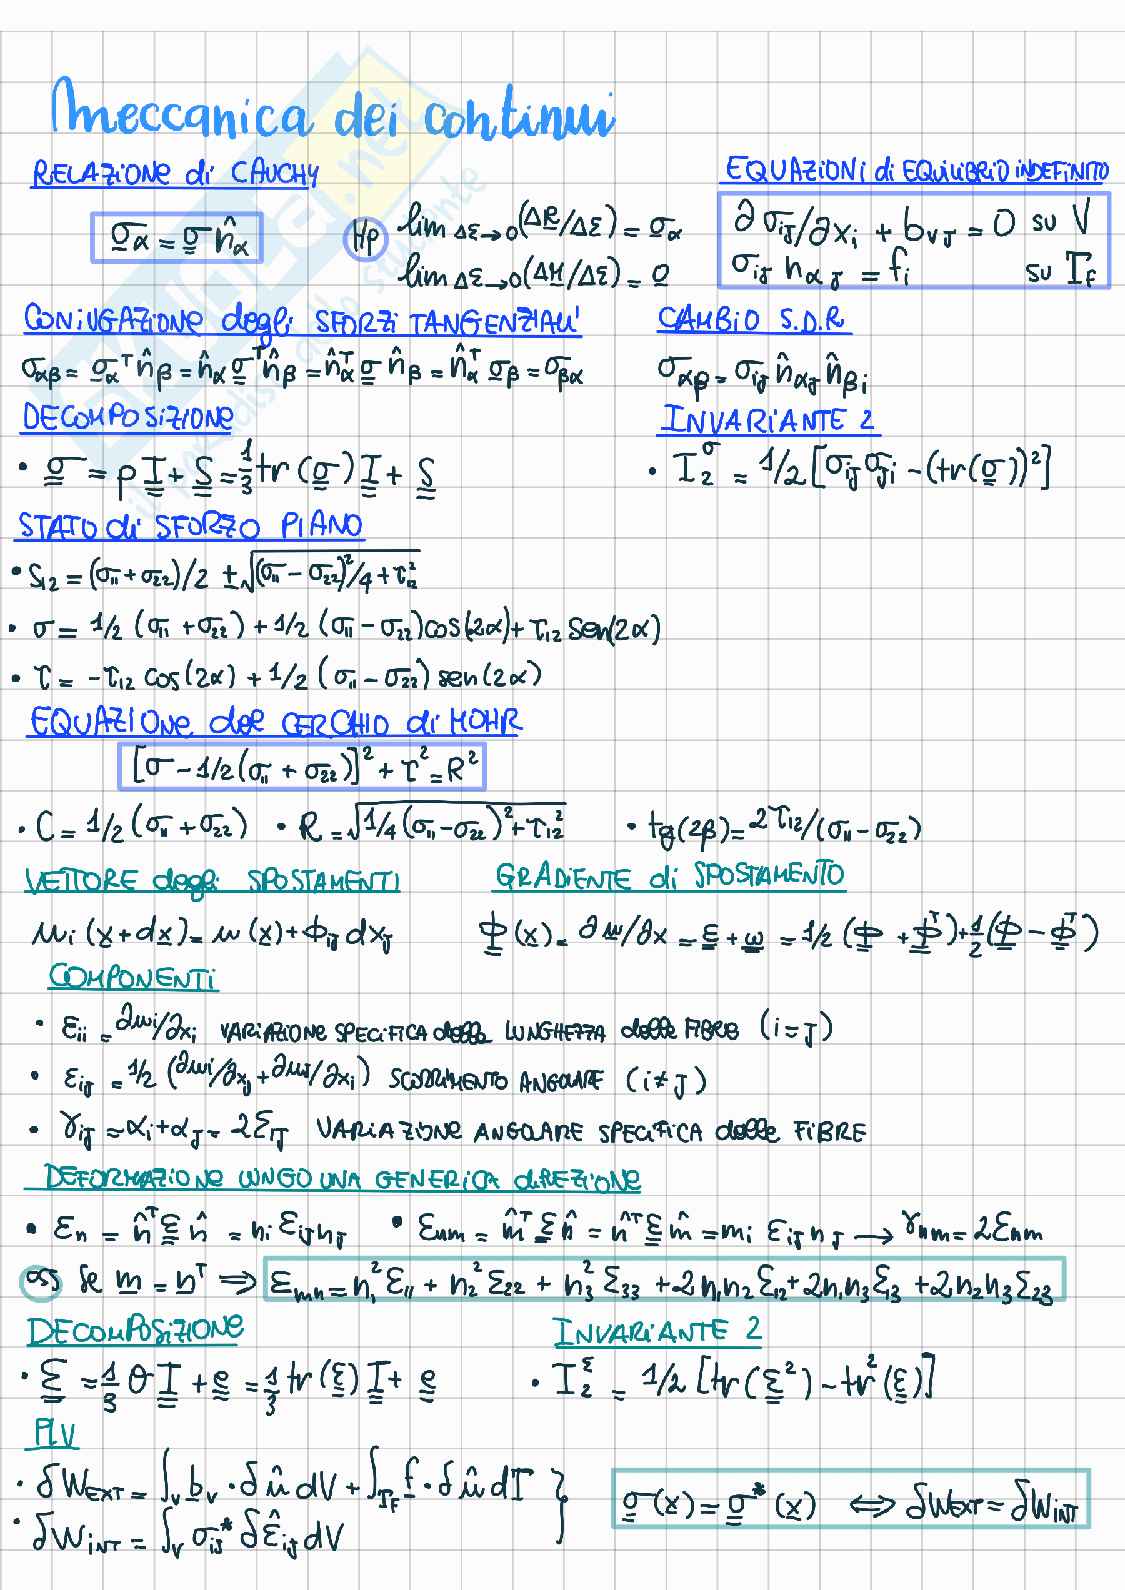 meccanica dei continui
RELAZIONE di CAUCHY
EQUAZIONI di EQUILIBRIO INDEFINITO
σ̲α = σ̳ n̂α
Hp lim ΔΣ→0 (ΔR/ΔΣ) = σ̲α
lim ΔΣ→0 (ΔM/ΔΣ) = 0̲
∂σij/∂xi + bvj = 0 su V
σij nαj = fi su ΓF
CONIUGAZIONE degli SFORZI TANGENZIALI
CAMBIO S.D.R
σαβ = σ̲αᵀ n̂β = n̂α σ̳ᵀ n̂β = n̂αᵀ σ̳ n̂β = n̂αᵀ σ̲β = σβα
σαβ = σij n̂αj n̂βi
DECOMPOSIZIONE
INVARIANTE 2
• σ̳ = p I̳ + S̳ = 1/3 tr(σ̳) I̳ + S̳
• I₂^σ = 1/2 [σij σji - (tr(σ̳))²]
STATO di SFORZO PIANO
• S12 = (σ11 + σ22)/2 ± √((σ11 - σ22)²/4 + τ12²)
• σ = 1/2 (σ11 + σ22) + 1/2 (σ11 - σ22) cos(2α) + τ12 sen(2α)
• τ = -τ12 cos(2α) + 1/2 (σ11 - σ22) sen(2α)
EQUAZIONE del CERCHIO di MOHR
[σ - 1/2(σ11 + σ22)]² + τ² = R²
• C = 1/2 (σ11 + σ22) • R = √(1/4 (σ11 - σ22)² + τ12²) • tg(2β) = 2τ12/(σ11 - σ22)
VETTORE degli SPOSTAMENTI
GRADIENTE di SPOSTAMENTO
ui (x̲ + dx̲) = u (x̲) + ϕij dxj
Φ̳ (x̲) = ∂u/∂x = ε̳ + ω̳ = 1/2 (Φ̳ + Φ̳ᵀ) + 1/2 (Φ̳ - Φ̳ᵀ)
COMPONENTI
• εii = ∂ui/∂xi VARIAZIONE SPECIFICA della LUNGHEZZA delle FIBRE (i = j)
• εij = 1/2 (∂ui/∂xj + ∂uj/∂xi) SCORRIMENTO ANGOLARE (i ≠ j)
• γij = αi + αj = 2εij VARIAZIONE ANGOLARE SPECIFICA delle FIBRE
DEFORMAZIONE LUNGO UNA GENERICA DIREZIONE
• εn = n̂ᵀ ε̳ n̂ = ni εij nj • εnm = m̂ᵀ ε̳ n̂ = n̂ᵀ ε̳ m̂ = mi εij nj → γnm = 2εnm
oss Se m̲ = n̲ᵀ ⇒ εmn = n₁² ε11 + n₂² ε22 + n₃² ε33 + 2n₁n₂ ε12 + 2n₁n₃ ε13 + 2n₂n₃ ε23
DECOMPOSIZIONE
INVARIANTE 2
• ε̳ = 1/3 θ I̳ + e̳ = 1/3 tr(ε̳) I̳ + e̳
• I₂^ε = 1/2 [tr(ε̳²) - tr²(ε̳)]
PLV
• δWEXT = ∫V b̲v · δû dV + ∫ΓF f̲ · δû dΓ
• δWINT = ∫V σij* δε̂ij dV
σ̳(x̲) = σ̳*(x̲) ⟺ δWEXT = δWINT